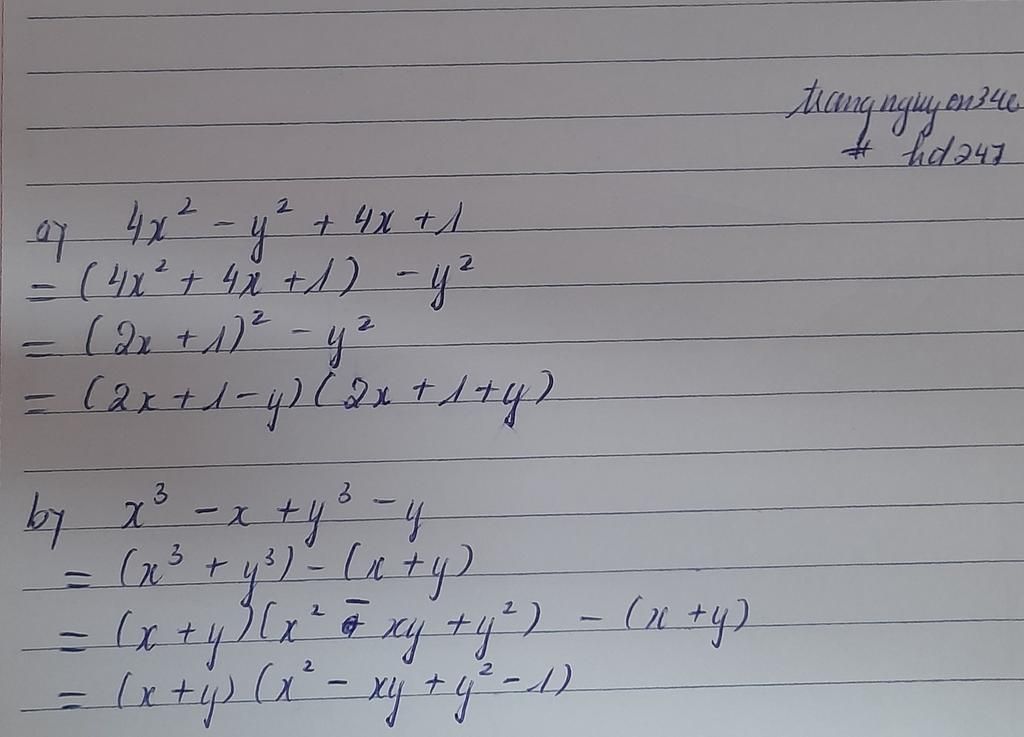 trangnguyen34e
# hd247
a) 4x² - y² + 4x + 1
= (4x² + 4x + 1) - y²
= (2x + 1)² - y²
= (2x + 1 - y)(2x + 1 + y)
b) x³ - x + y³ - y
= (x³ + y³) - (x + y)
= (x + y)(x² - xy + y²) - (x + y)
= (x + y)(x² - xy + y² - 1)